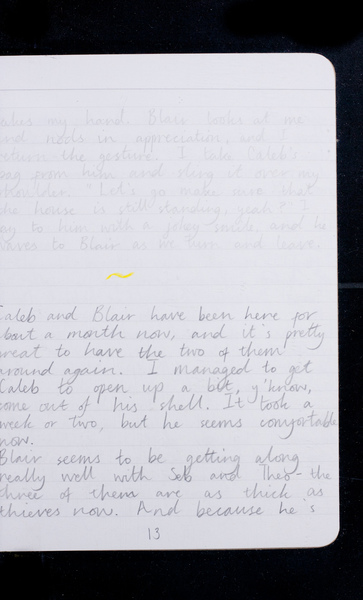 my hand. Blair looks at me
and nods in appreciation, and I
return the gesture. I take Caleb's
bag from him and sling it over my
shoulder. "Let's go make sure that
the house is still standing, yeah?" I
say to him with a jokey smile, and he
waves to Blair as we turn and leave.
~
Caleb and Blair have been here for
about a month now, and it's pretty
great to have the two of them
around again. I managed to get
Caleb to open up a bit, y'know,
come out of his shell. It took a
week or two, but he seems comfortable
now.
Blair seems to be getting along
really well with Seb and Theo - the
three of them are as thick as
thieves now. And because he's
13